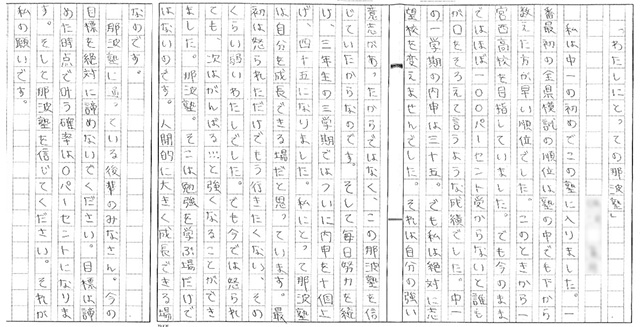 「わたしにとっての那波塾」
私は中一の初めでこの塾に入りました。一
番最初の全県模試の順位は塾の中でも下から
数えた方が早い順位でした。このときから一
宮西高校を目指していました。でも今のまま
ではほぼ一〇〇パーセント受からないと誰も
が口をそろえて言うような成績でした。中一
の一学期の内申は三十五。でも私は絶対に志
望校を変えませんでした。それは自分の強い
意志があったからではなく、この那波塾を信
じていたからなのです。そして毎日努力を続
け、三年生の三学期ではついに内申を十個上
げ、四十五になりました。私にとって那波塾
は自分を成長できる場だと思っています。最
初は怒られただけでもう行きたくない、その
くらい弱いわたしでした。でも今では怒られ
ても、次はがんばる…と強くなることができ
ました。那波塾。そこは勉強を学ぶ場だけで
はないのです。人間的に大きく成長できる場
なのです。
那波塾に通っている後輩のみなさん。今の
目標を絶対に諦めないでください。目標は諦
めた時点で叶う確率は0パーセントになりま
す。そして那波塾を信じてください。それが
私の願いです。